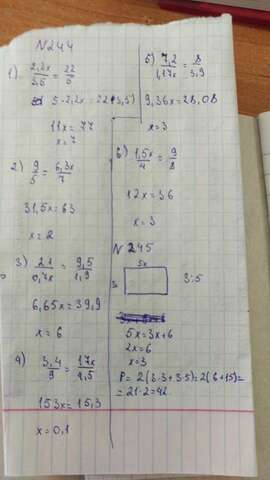 N 244
1) 2,2x/3,5 = 22/5
5·2,2x = 22·3,5
11x = 77
x = 7
2) 9/5 = 6,3x/7
31,5x = 63
x = 2
3) 21/0,7x = 9,5/1,9
6,65x = 39,9
x = 6
4) 3,4/9 = 17x/4,5
153x = 15,3
x = 0,1
5) 7,2/1,17x = 8/3,9
9,36x = 28,08
x = 3
6) 1,5x/4 = 9/8
12x = 36
x = 3
N 245
5x
3x
3:5
5x = 3x + 6
2x = 6
x = 3
P = 2(3·3+3·5) = 2(6+15) =
= 21·2 = 42